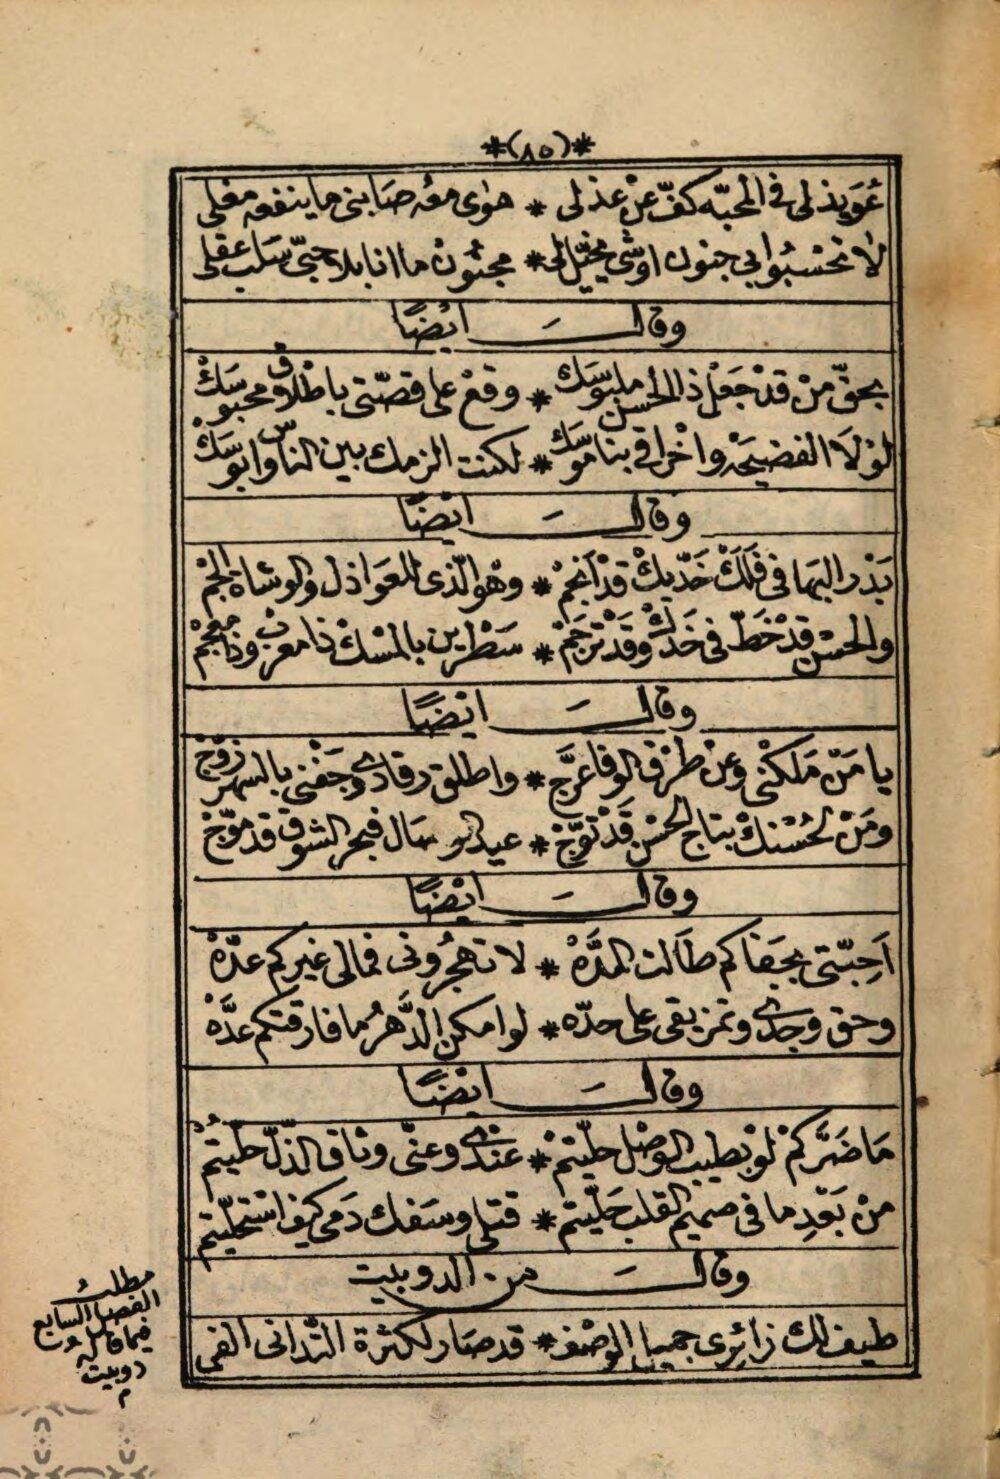 *(٨٥)*
عُوَيذلى فى المحبّه كفّ عن عذلى * هوٰى معه صَابنى ما ينفعه مغلى
لا تحْسبُوا بى جنون اوشى مخيّل لى * مجنُون ما انا بلا حبّى سَلب عقلى
وقال ايْضًا
بحقّ منْ قدْ جَعَلْ ذا الحُسن ملبوسَك * وقعْ على قصّتى باطلاق محبوسَكْ
لوْلَا الفضيحَه واخْراقى بنامُوسَك * لكنت الزمك بين الناسْ وابوسَكْ
وقال ايْضًا
بَدْر البها فى فَلَكْ خَدّيك قدْ اَنجمْ * وهو الّذى للعواذل والوشاة الجْم
والحسْن قدْ خَطّ فى خَدكْ وَقَدْ تَرْجَمْ * سَطْرين بالمسْك ذا معربْ وذا معْجَمْ
وقال ايْضًا
يا مَنْ مَلكْنى وعنْ طرْق الوفا عرَّج * واطلق رقادى وجَفْنى بالسهر زوّج
ومَنْ لحُسْنكْ بتاج الحُسْن قَدْ توّج * عيد الوصال فبحر الشوق قد موّج
وقال ايْضًا
اَحِبّتى بجَفاكم طاَلت المدَّهْ * لا تهجُرُونى فمالى غيركم عدّهْ
وحق وجدى وتمزيقى على حدّه * لو امكن الدَّهرُ ما فارقتكم عدَّهْ
وقال ايْضًا
مَا ضَرّكمْ لوْ بطيب الوصْل حلّيتمْ * عنْدى وعنّى وثاق الذّلّ حلّيتُمْ
منْ بَعْدِ ما فى صميم القلب حَلّيتم * قتلى وسَفك دَمى كيف اسْتحلّيتم
وقال من الدوبيت
طيف لك زائِرى جميل الوصْف * قد صَار لكثرة التدانى الفى
مطلب
الفصل السابع
فيما قاله من
دوبيت
م